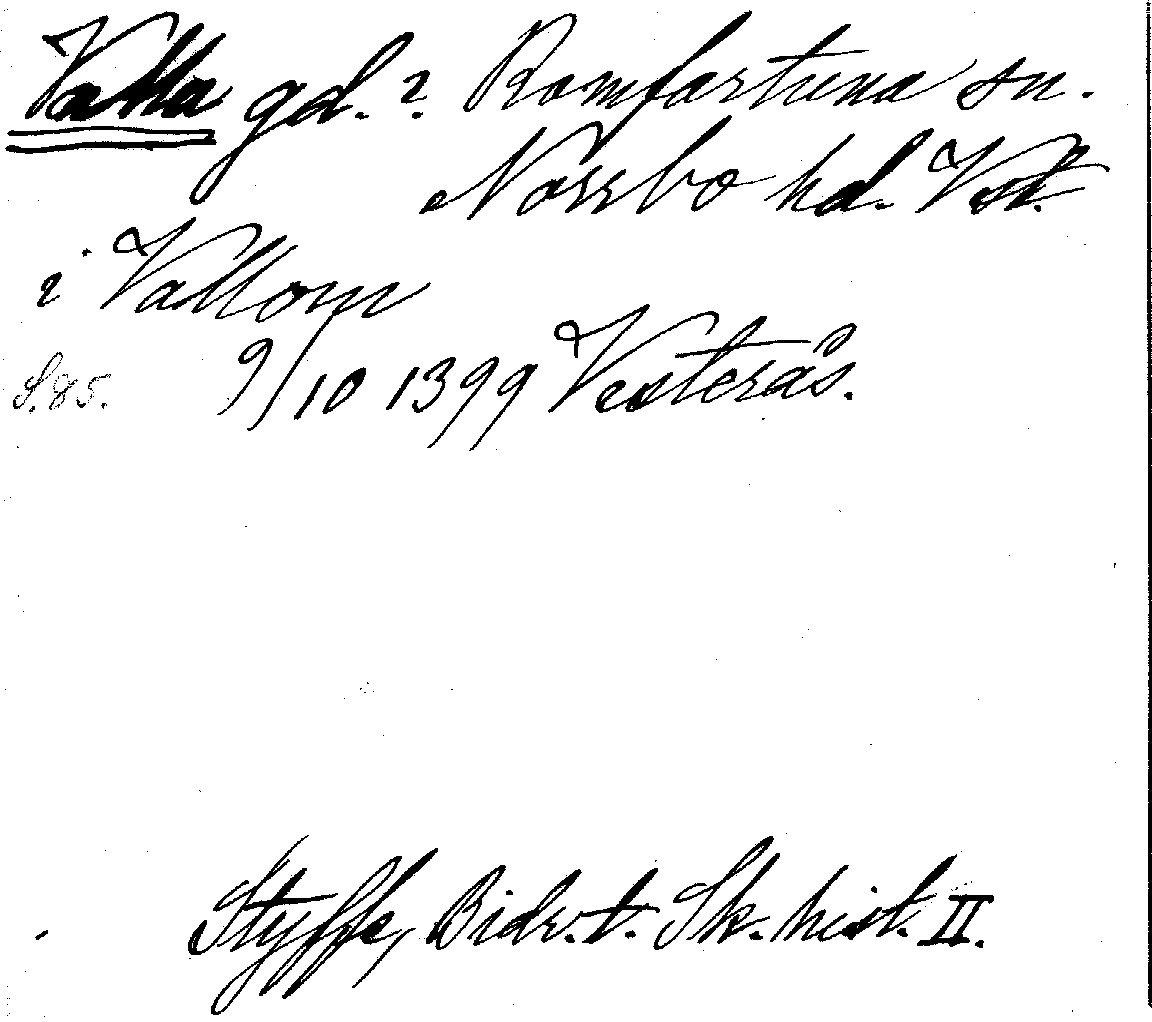 Valla gd. ? Romfartuna sn.
Norrbo hd. Vstl.
i Vallom
S. 85. 9/10 1399 Vesterås.
Styffe, Bidr. t. Sk. hist. II.